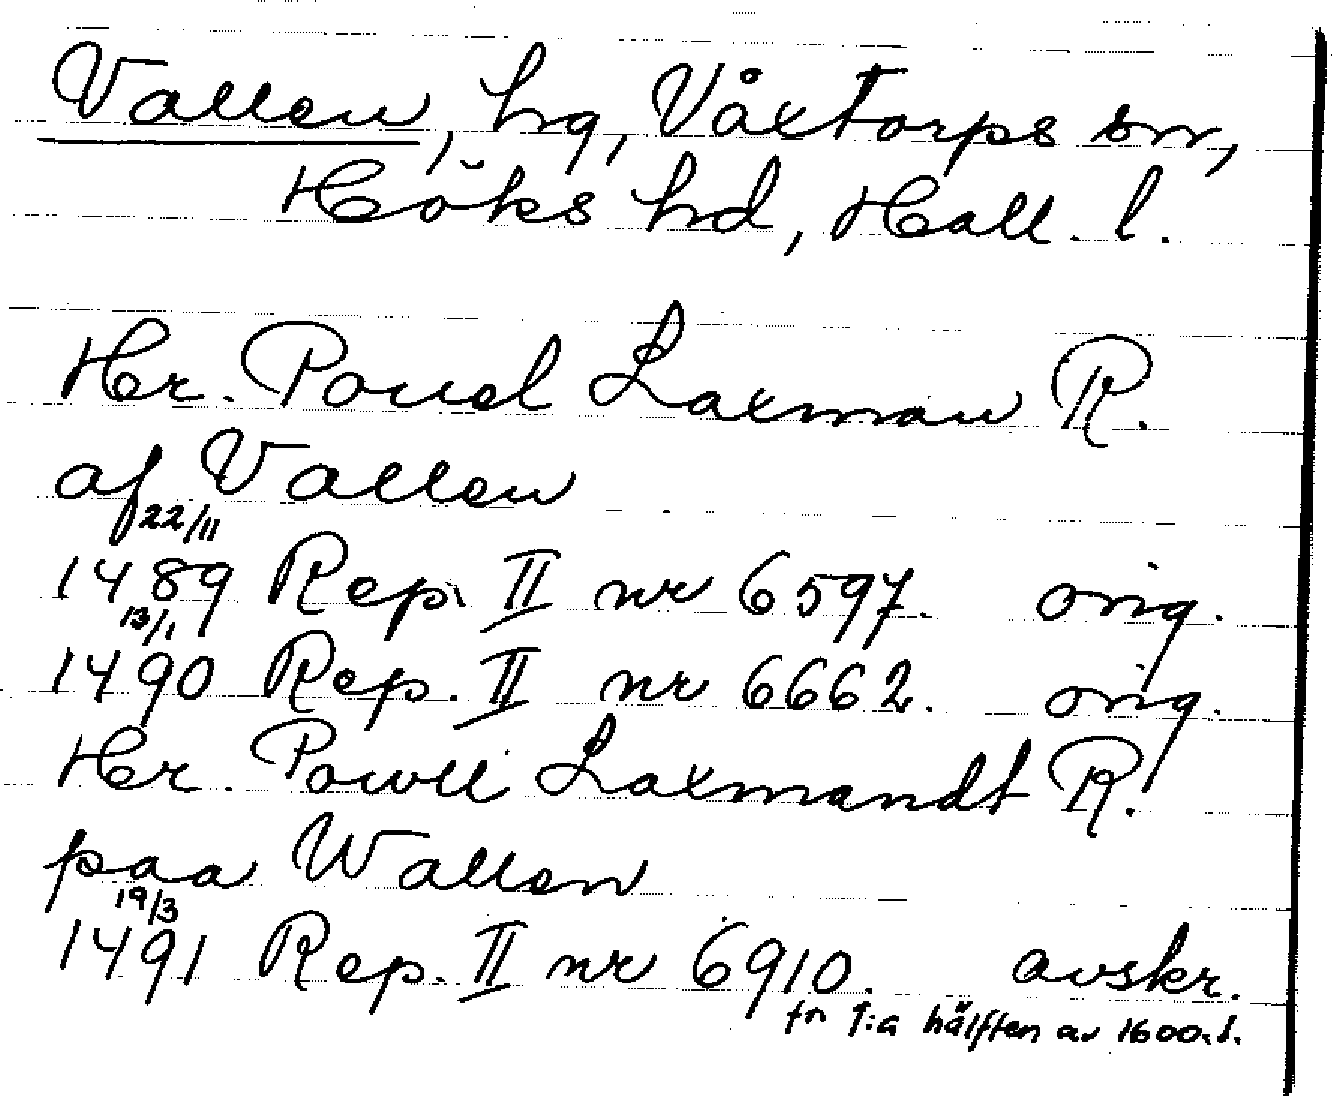 Vallen, hg, Våxtorps sn,
Höks hd, Hall. l.
Hr. Pouel Laxman R.
af Vallen
22/11
1489 Rep. II nr 6597. orig.
13/1
1490 Rep. II nr 6662. orig.
Hr. Powll Laxmandt R.
paa Wallen
19/3
1491 Rep. II nr 6910. avskr.
fr 1:a hälften av 1600-t.